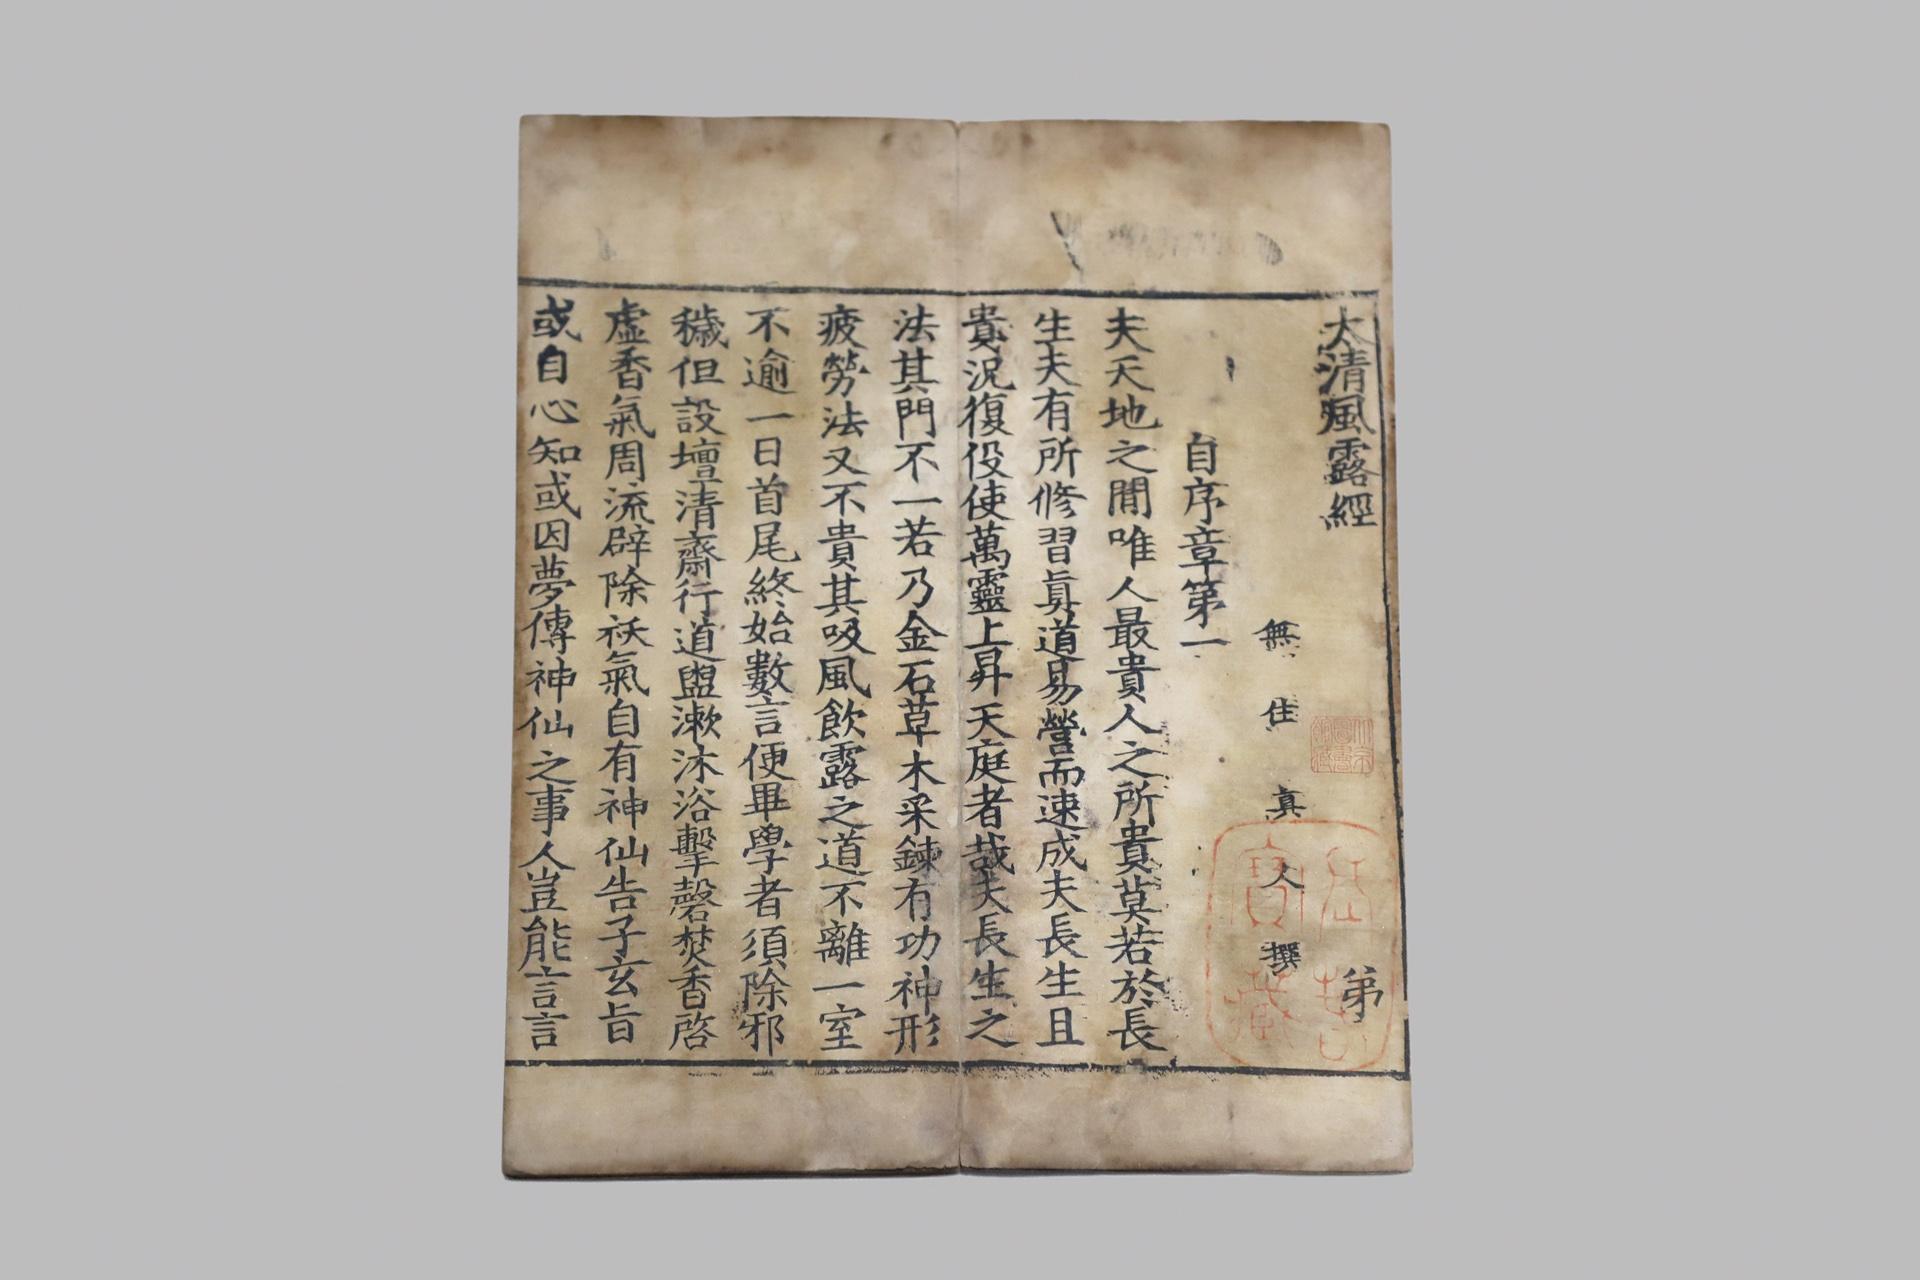 太清風露經 第
無住真人撰
自序章第一
夫天地之間唯人最貴人之所貴莫若於長
生夫有所修習眞道易營而速成夫長生且
貴況復役使萬靈上昇天庭者哉夫長生之
法其門不一若乃金石草木采鍊有功神形
疲勞法又不貴其吸風飲露之道不離一室
不逾一日首尾終始數言便畢學者須除邪
穢但設壇清齋行道盥漱沐浴擊磬焚香啓
虛香氣周流辟除祅氣自有神仙告子玄旨
或自心知或因夢傳神仙之事人豈能言言